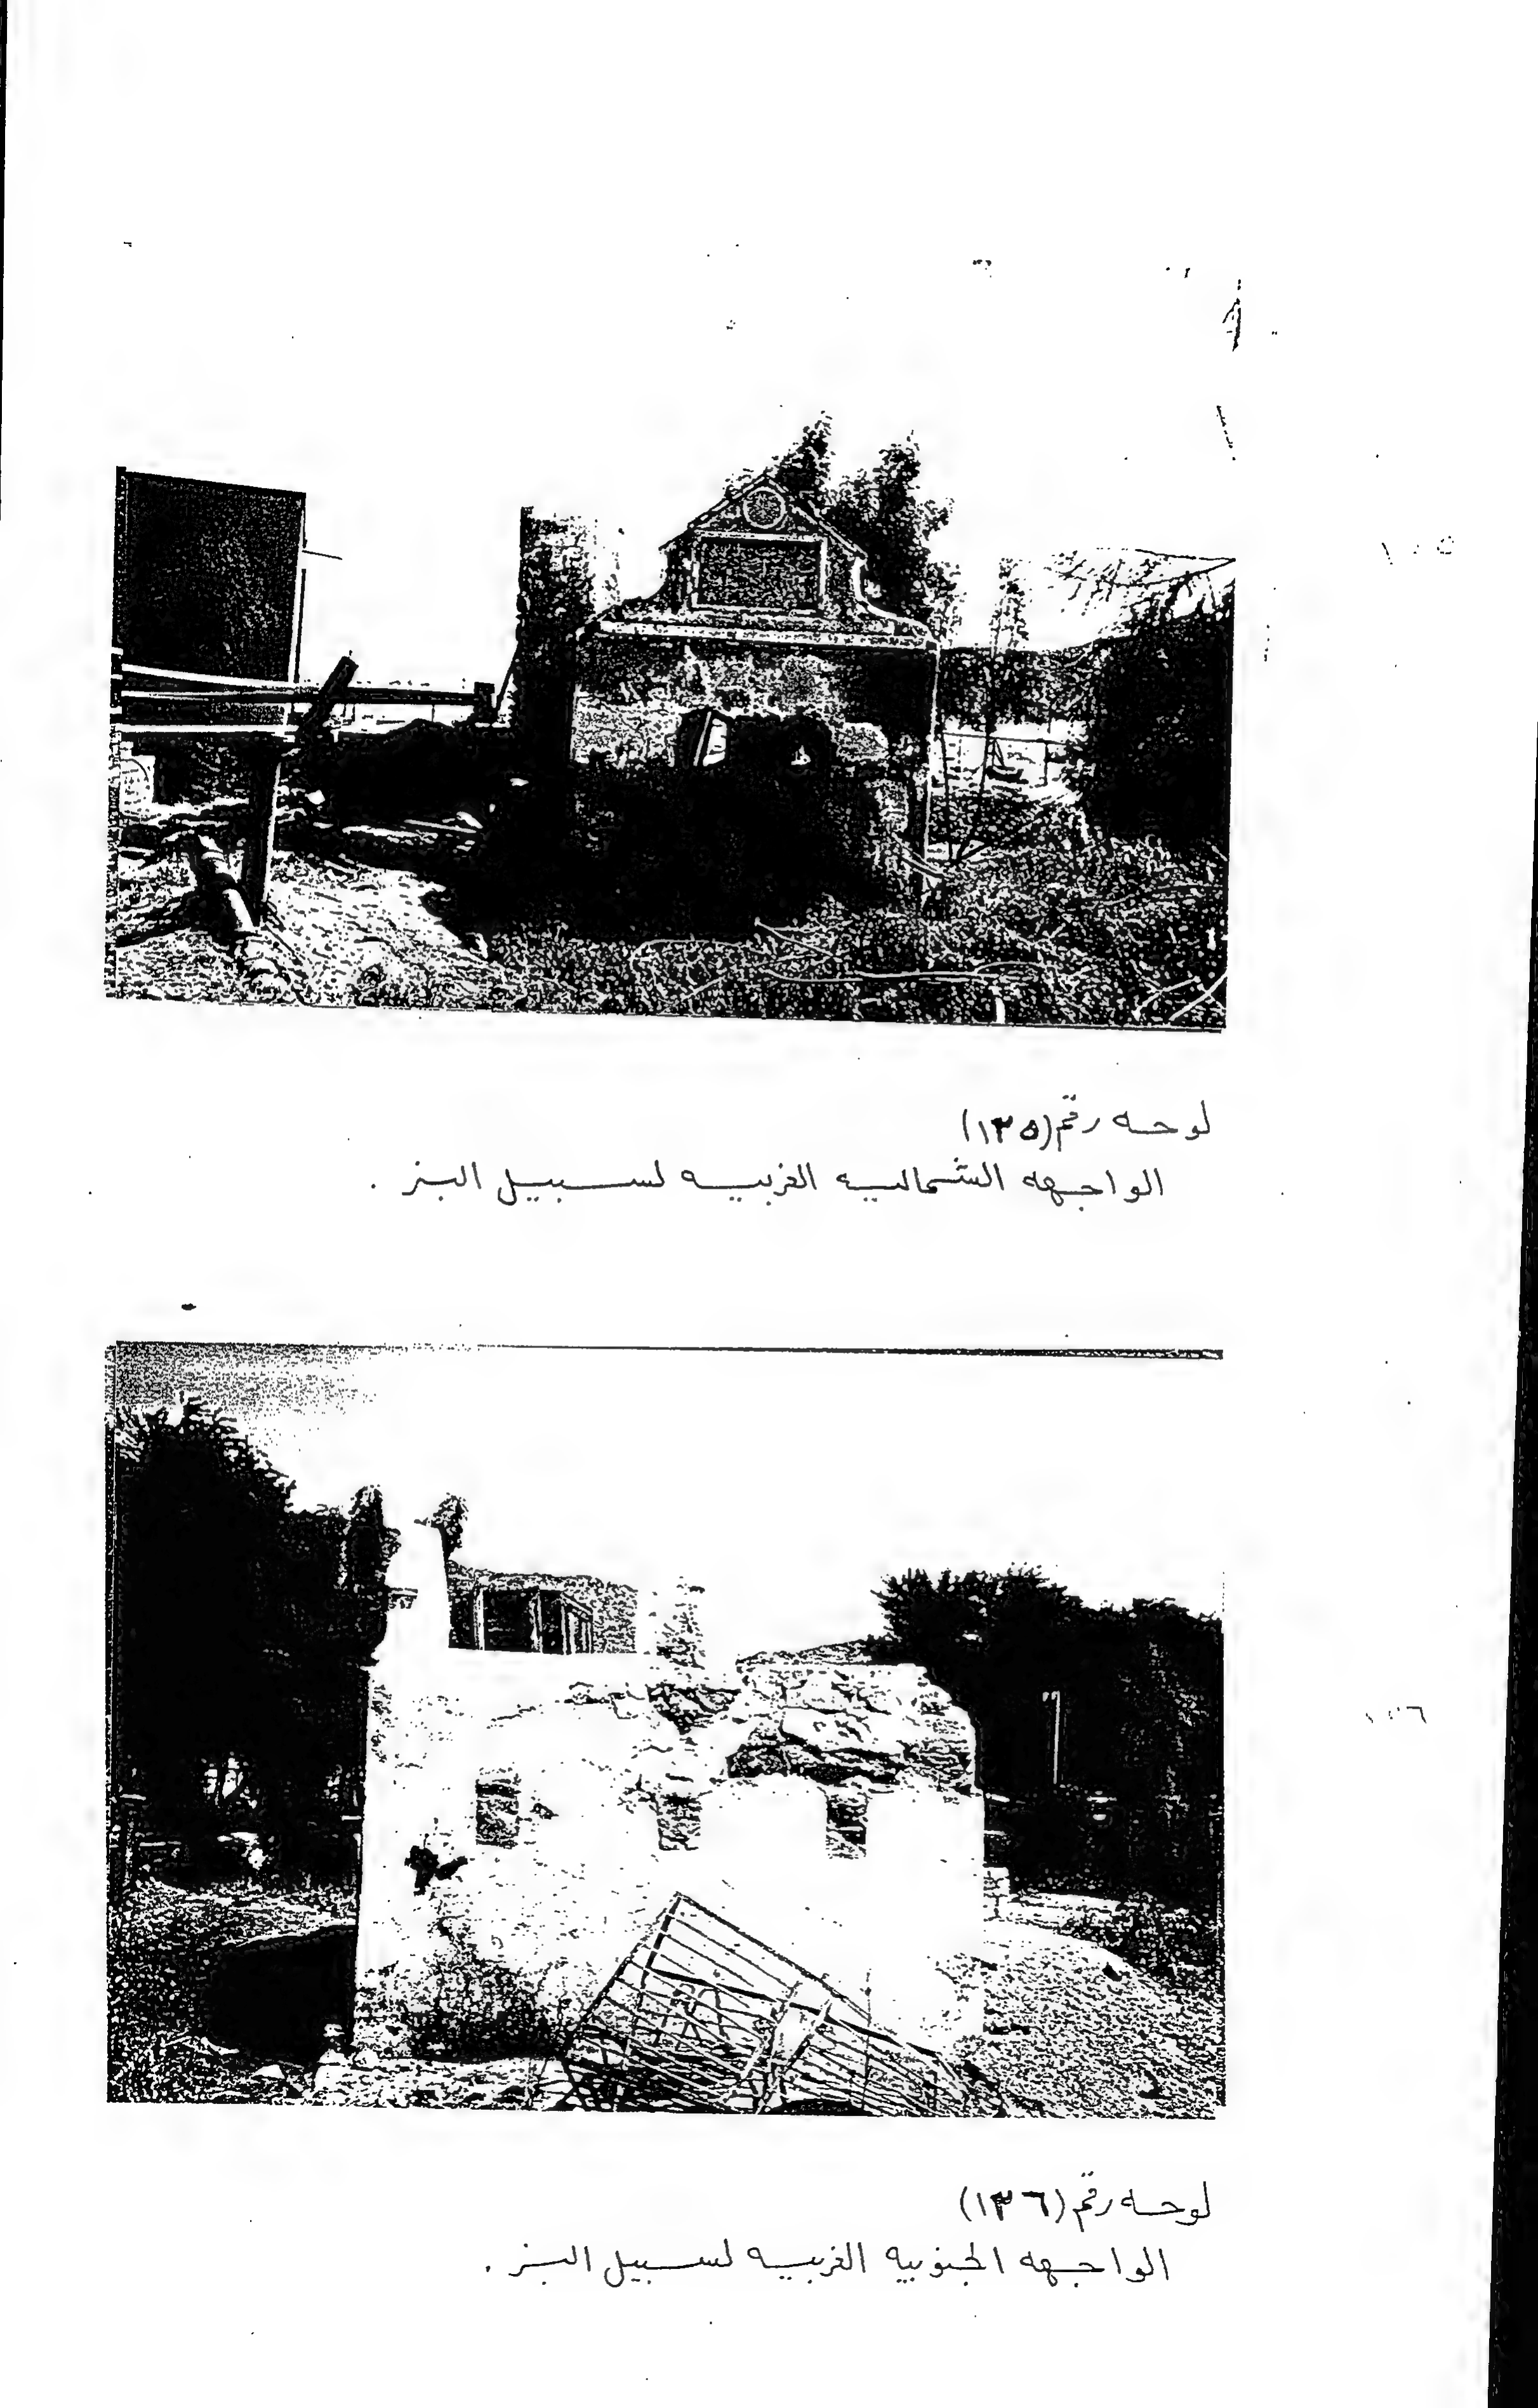 لوحه رقم (١٣٥)
الواجهه الشماليه الغربيه لسبيل البنز .
لوحه رقم (١٣٦)
الواجهه الجنوبيه الغربيه لسبيل البنز .